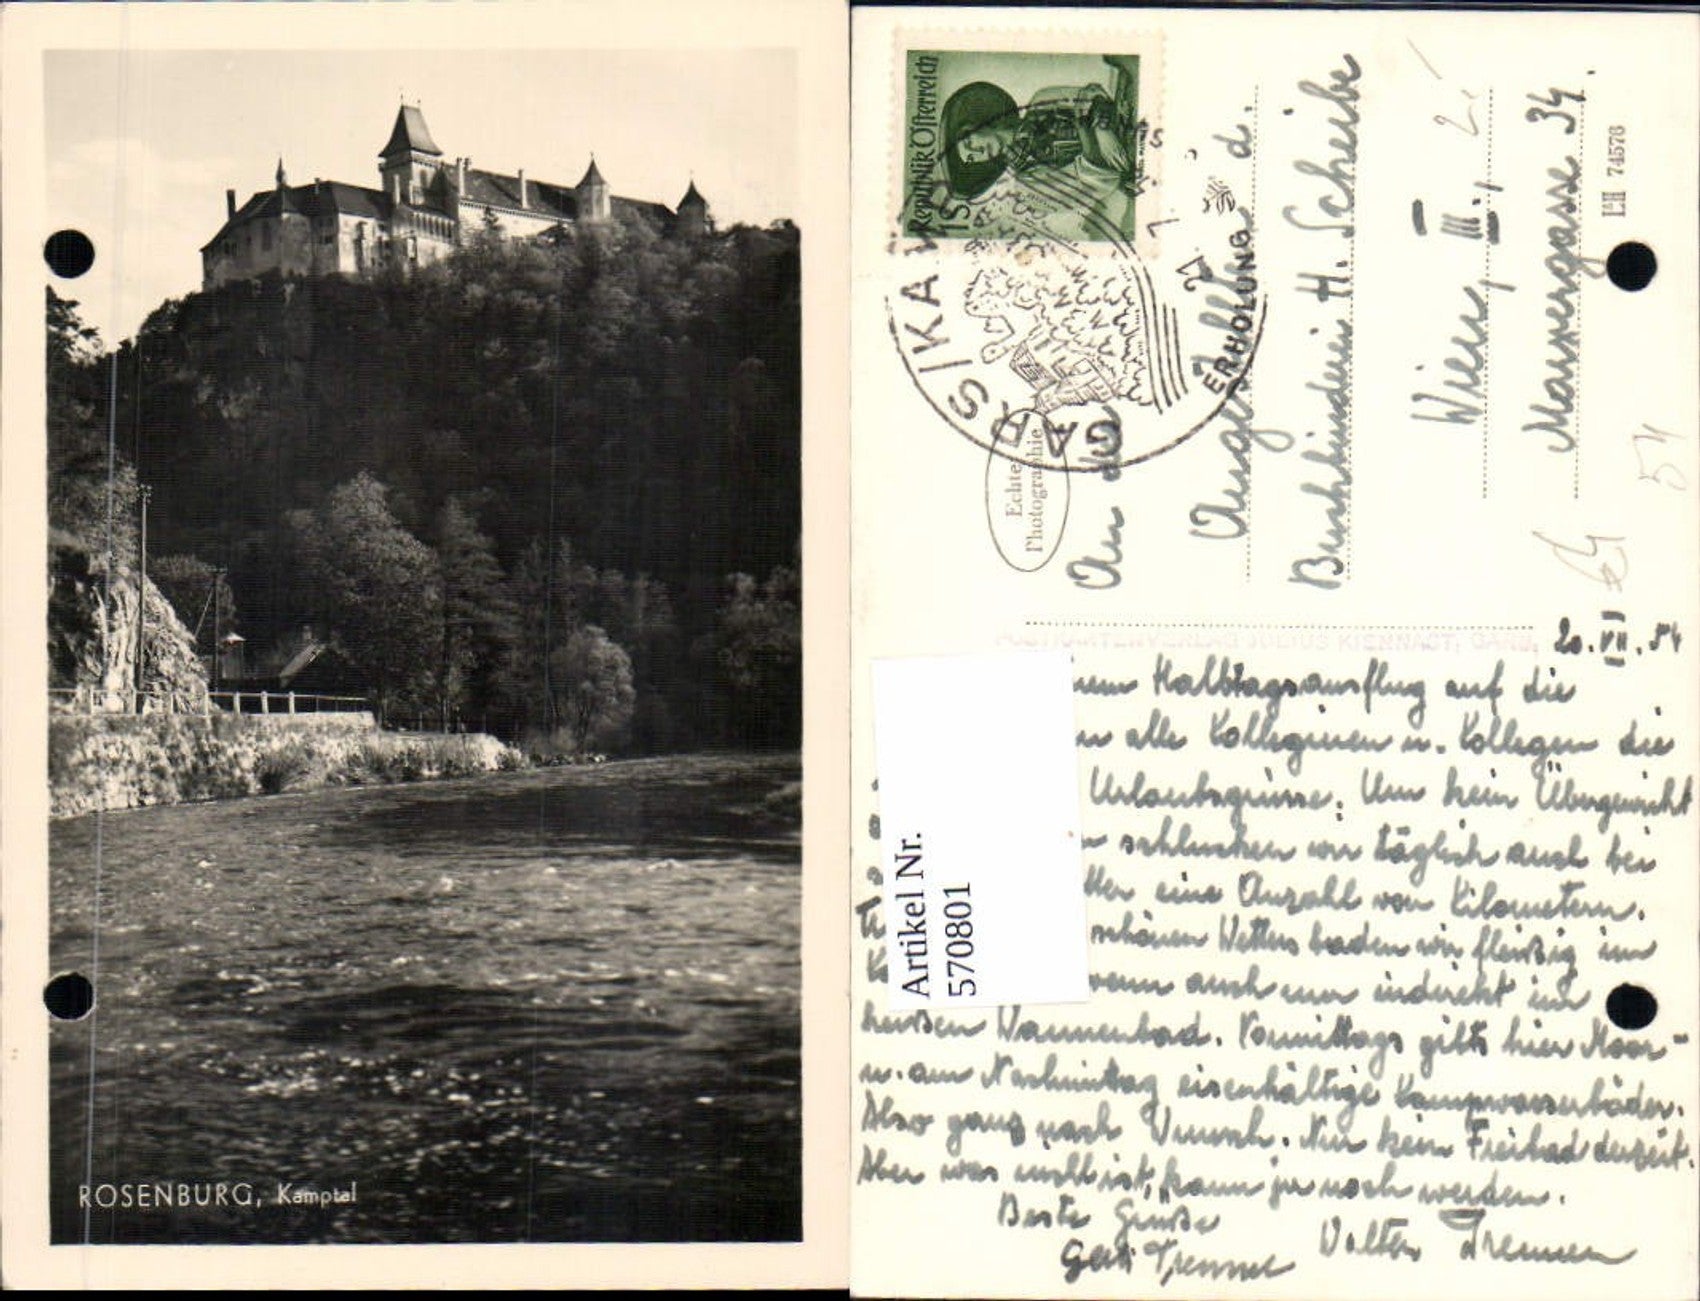 ROSENBURG, Kamptal
Republik Österreich
1 S
GARS/KAMP
ERHOLUNG
21. 7.
Echte
Photographie
An die
Angestellten d.
Buchbinderei H. Scheibe
Wien, III.,
Marxergasse 34.
74576
54
POSTKARTENVERLAG JULIUS KIENNAST, GARS.
20. VII. 54
Artikel Nr.
570801
Halbtagsausflug auf die
alle Kolleginnen u. Kollegen die
Urlaubsgrüsse. Um kein Übergewicht
schlucken wir täglich auch bei
eine Anzahl von Kilometern.
schönen Wetters baden wir fleißig im
wenn auch nur indirekt im
heißen Wannenbad. Vormittags gibts hier Moor-
u. am Nachmittag eisenhältige Kampwasserbäder.
Also ganz nach Wunsch. Nur kein Freibad derzeit.
Aber was nicht ist, kann ja noch werden.
Beste Grüße
Walter